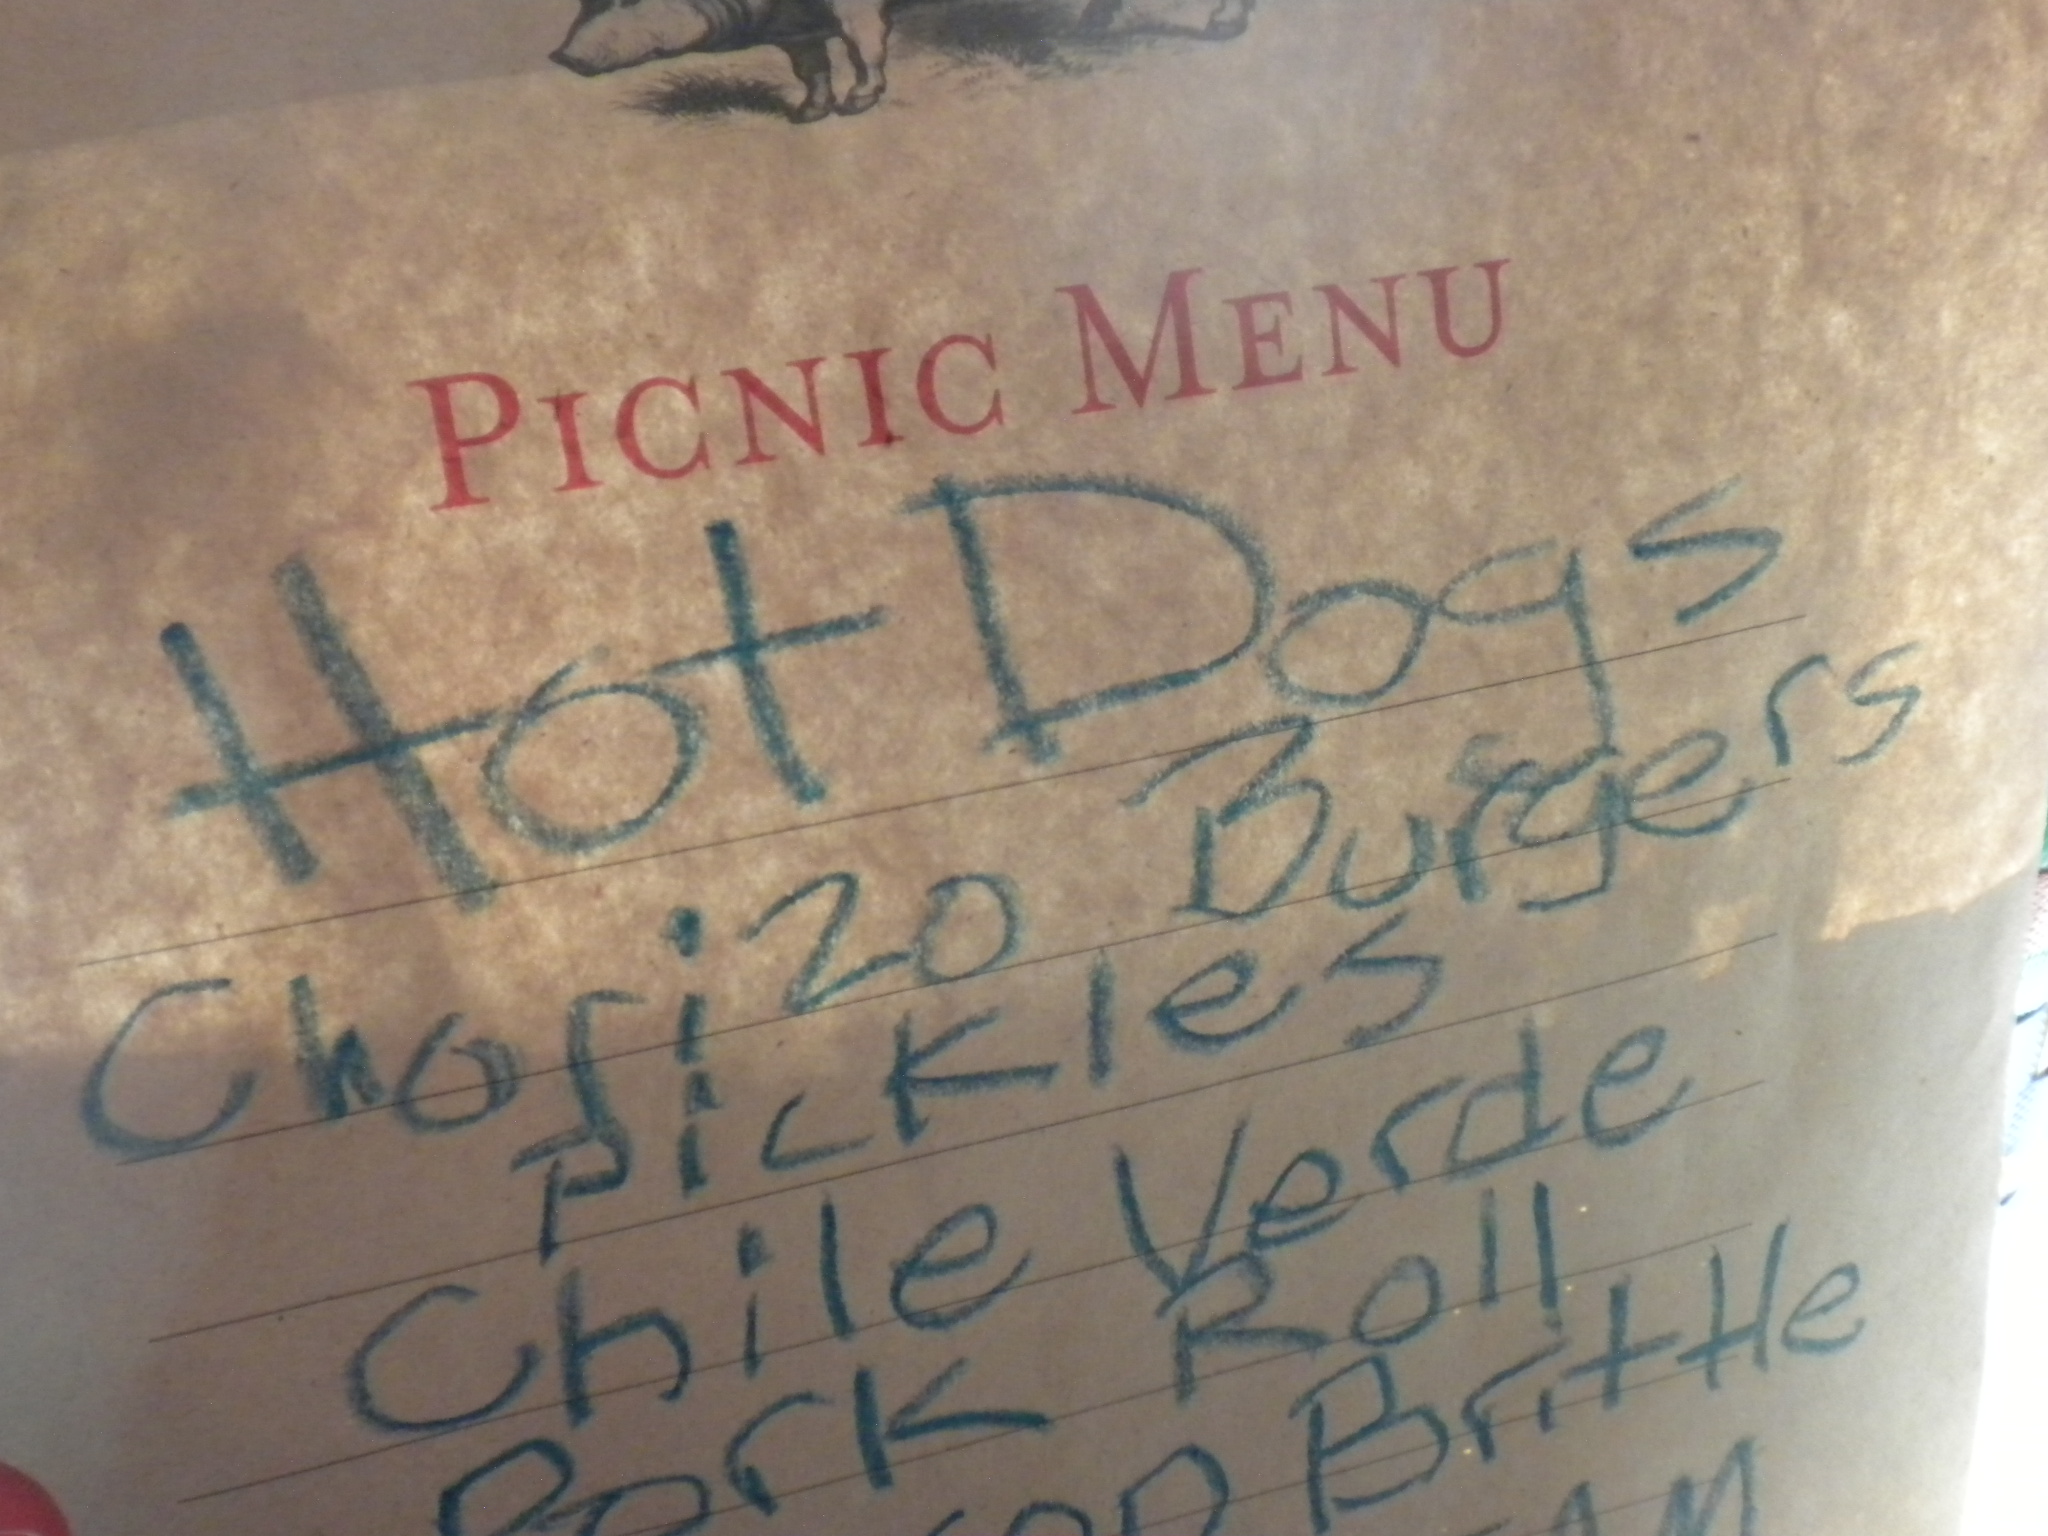 PICNIC MENU
Hot Dogs
Chorizo Burgers
Pickles
Chile Verde
Pork Roll
Brittle